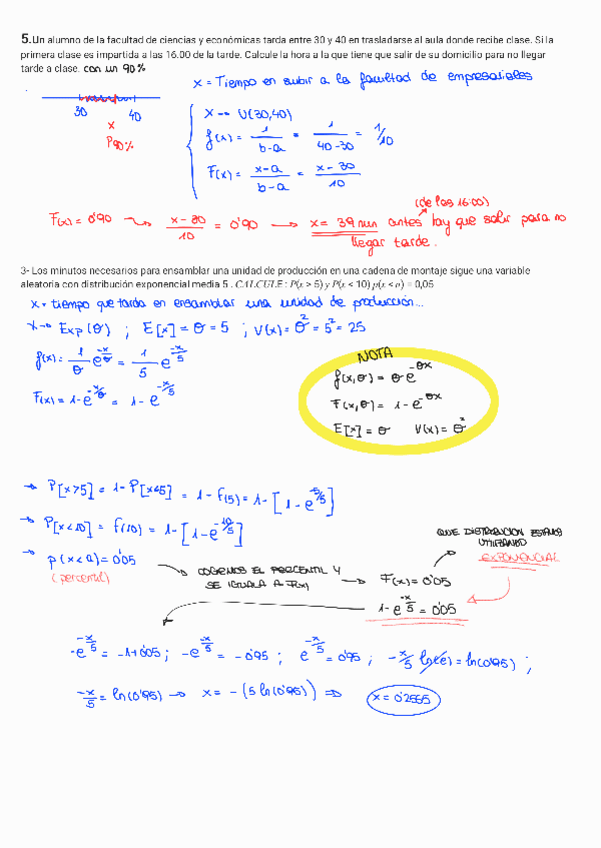 5.Un alumno de la facultad de ciencias y económicas tarda entre 30 y 40 en trasladarse al aula donde recibe clase. Si la
primera clase es impartida a las 16.00 de la tarde. Calcule la hora a la que tiene que salir de su domicilio para no llegar
tarde a clase. con un 90%
x = Tiempo en subir a la facultad de empresariales
30 40
x
P90%
X → U(30,40)
f(x) = 1/(b-a) = 1/(40-30) = 1/10
F(x) = (x-a)/(b-a) = (x-30)/10
(de las 16:00)
F(x) = 0'90 → (x-30)/10 = 0'90 → x = 39 min antes hay que salir para no
llegar tarde.
3- Los minutos necesarios para ensamblar una unidad de producción en una cadena de montaje sigue una variable
aleatoria con distribución exponencial media 5 . CALCULE : P(x > 5) y P(x < 10) p(x < a) = 0,05
x = tiempo que tarda en ensamblar una unidad de producción...
x → Exp(θ) ; E[x] = θ = 5 ; V(x) = θ² = 5² = 25
f(x) = 1/θ e^(-x/θ) = 1/5 e^(-x/5)
F(x) = 1-e^(-x/θ) = 1-e^(-x/5)
NOTA
f(x,θ) = θe^(-θx)
F(x,θ) = 1-e^(-θx)
E[x] = θ V(x) = θ^x
→ P[x>5] = 1-P[x<5] = 1-F(5) = 1-[1-e^(-5/5)]
→ P[x<10] = f(10) = 1-[1-e^(-10/5)]
→ p(x<a) = 0'05
(percentil)
COGEMOS EL PERCENTIL Y
SE IGUALA A F(x)
→ F(x) = 0'05
QUE DISTRIBUCION ESTAMOS
UTILIZANDO
EXPONENCIAL
1-e^(-x/5) = 0'05
-e^(-x/5) = -1+0'05 ; -e^(-x/5) = -0'95 ; e^(-x/5) = 0'95 ; -x/5 ln(e) = ln(0'95) ;
-x/5 = ln(0'95) → x = -(5 ln(0'95)) ⇒ x = 0'2565